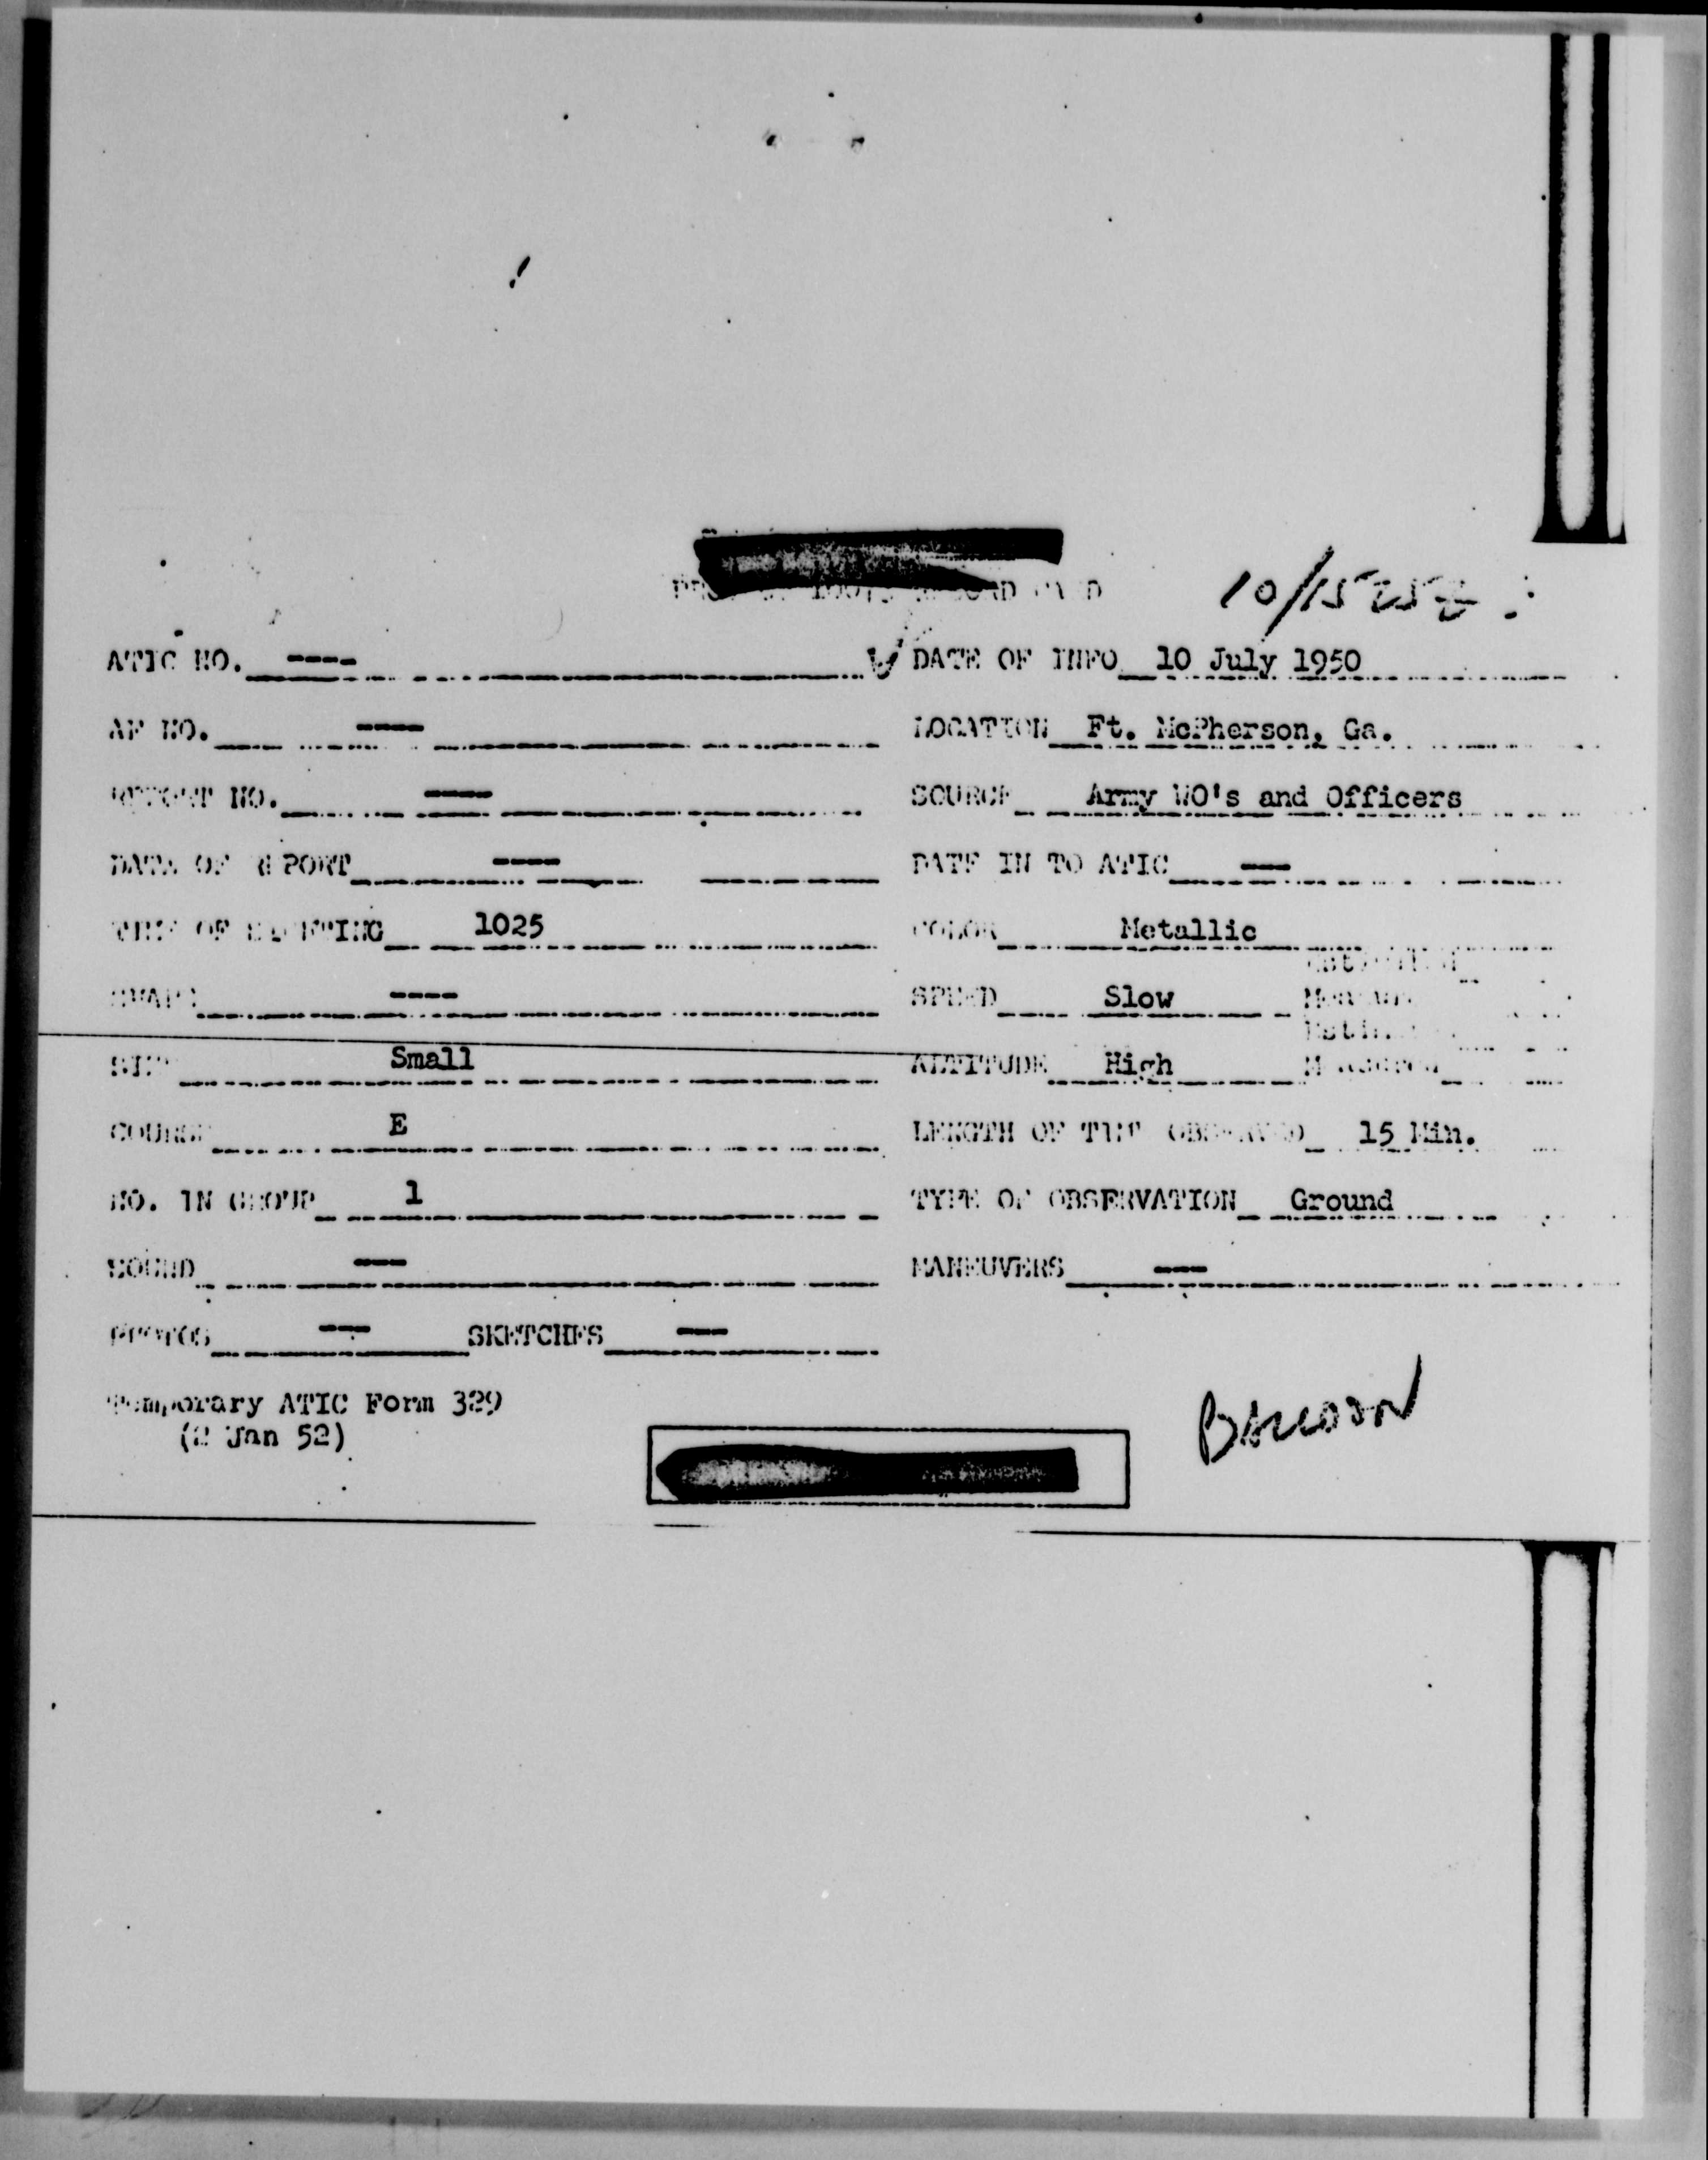 10/1525Z
ATIC NO. ----
DATE OF INFO 10 July 1950
AF NO. ----
LOCATION Ft. McPherson, Ga.
REPORT NO. ----
SOURCE Army WO's and Officers
DATE OF REPORT ----
DATE IN TO ATIC ---
TIME OF SIGHTING 1025
COLOR Metallic
SHAPE ----
SPEED Slow
SIZE Small
ALTITUDE High
COURSE E
LENGTH OF TIME OBSERVED 15 Min.
NO. IN GROUP 1
TYPE OF OBSERVATION Ground
SOUND ---
MANEUVERS ---
PHOTOS --- SKETCHES ---
Temporary ATIC Form 329
(2 Jan 52)
BALLOON